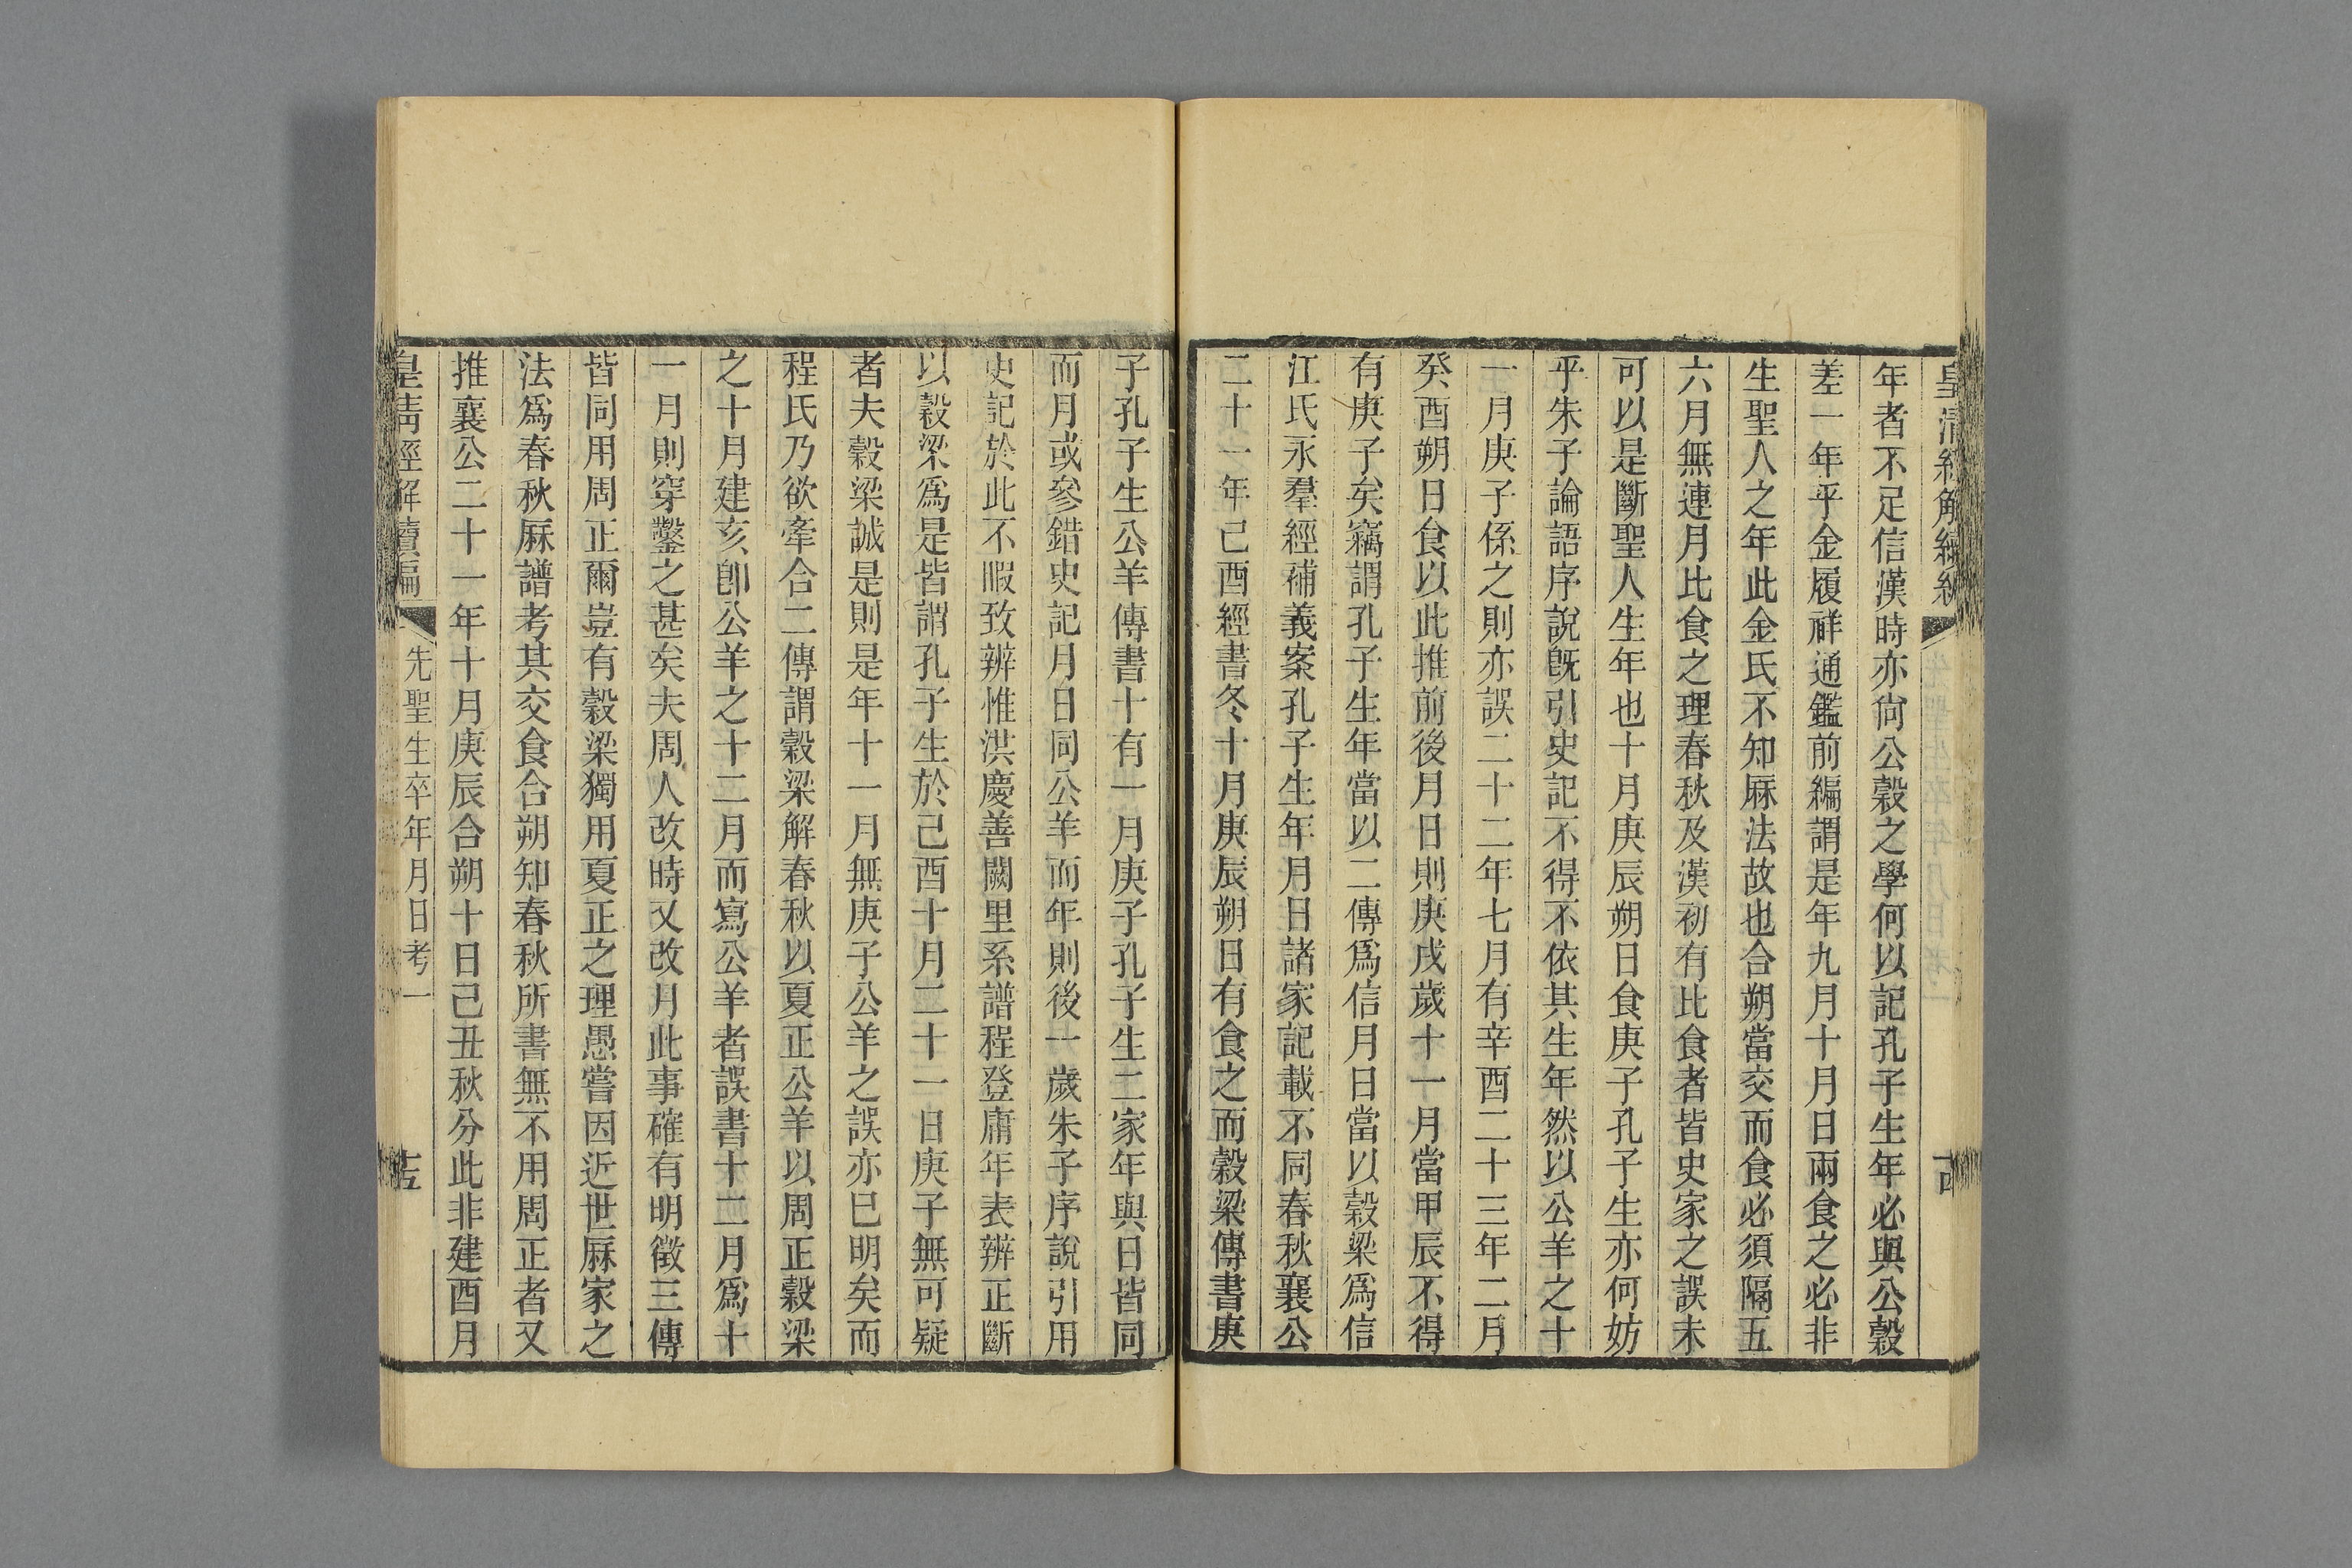 皇清經解續編
年者不足信漢時亦尙公穀之學何以記孔子生年必與公穀
差一年乎金履祥通鑑前編謂是年九月十月日兩食之必非
生聖人之年此金氏不知厤法故也合朔當交而食必須隔五
六月無連月比食之理春秋及漢初有比食者皆史家之誤未
可以是斷聖人生年也十月庚辰朔日食庚子孔子生亦何妨
乎朱子論語序說旣引史記不得不依其生年然以公羊之十
一月庚子係之則亦誤二十二年七月有辛酉二十三年二月
癸酉朔日食以此推前後月日則庚戌歲十一月當甲辰不得
有庚子矣竊謂孔子生年當以二傳爲信月日當以穀梁爲信
江氏永羣經補義案孔子生年月日諸家記載不同春秋襄公
二十一年己酉經書冬十月庚辰朔日有食之而穀梁傳書庚
子孔子生公羊傳書十有一月庚子孔子生二家年與日皆同
而月或參錯史記月日同公羊而年則後一歲朱子序說引用
史記於此不暇致辨惟洪慶善闕里系譜程登庸年表辨正斷
以穀梁爲是皆謂孔子生於己酉十月二十一日庚子無可疑
者夫穀梁誠是則是年十一月無庚子公羊之誤亦已明矣而
程氏乃欲牽合二傳謂穀梁解春秋以夏正公羊以周正穀梁
之十月建亥卽公羊之十二月而寫公羊者誤書十二月爲十
一月則穿鑿之甚矣夫周人改時又改月此事確有明徵三傳
皆同用周正爾豈有穀梁獨用夏正之理愚嘗因近世厤家之
法爲春秋厤譜考其交食合朔知春秋所書無不用周正者又
推襄公二十一年十月庚辰合朔十日己丑秋分此非建酉月
皇清經解續編 先聖生卒年月日考一